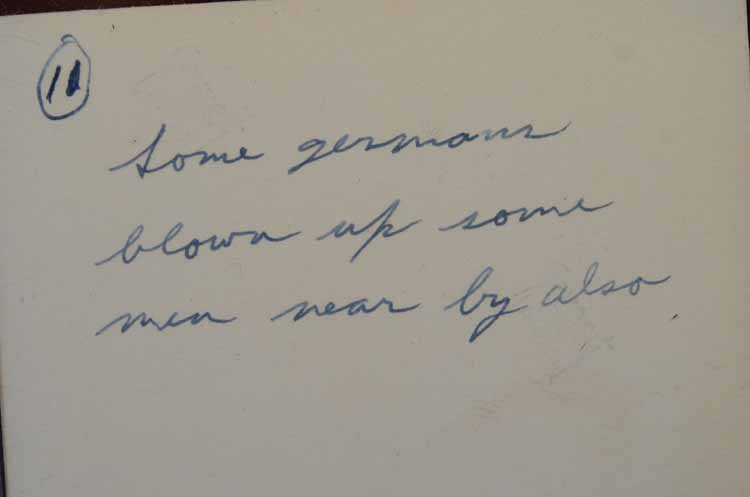 11
Some germans
blown up some
men near by also